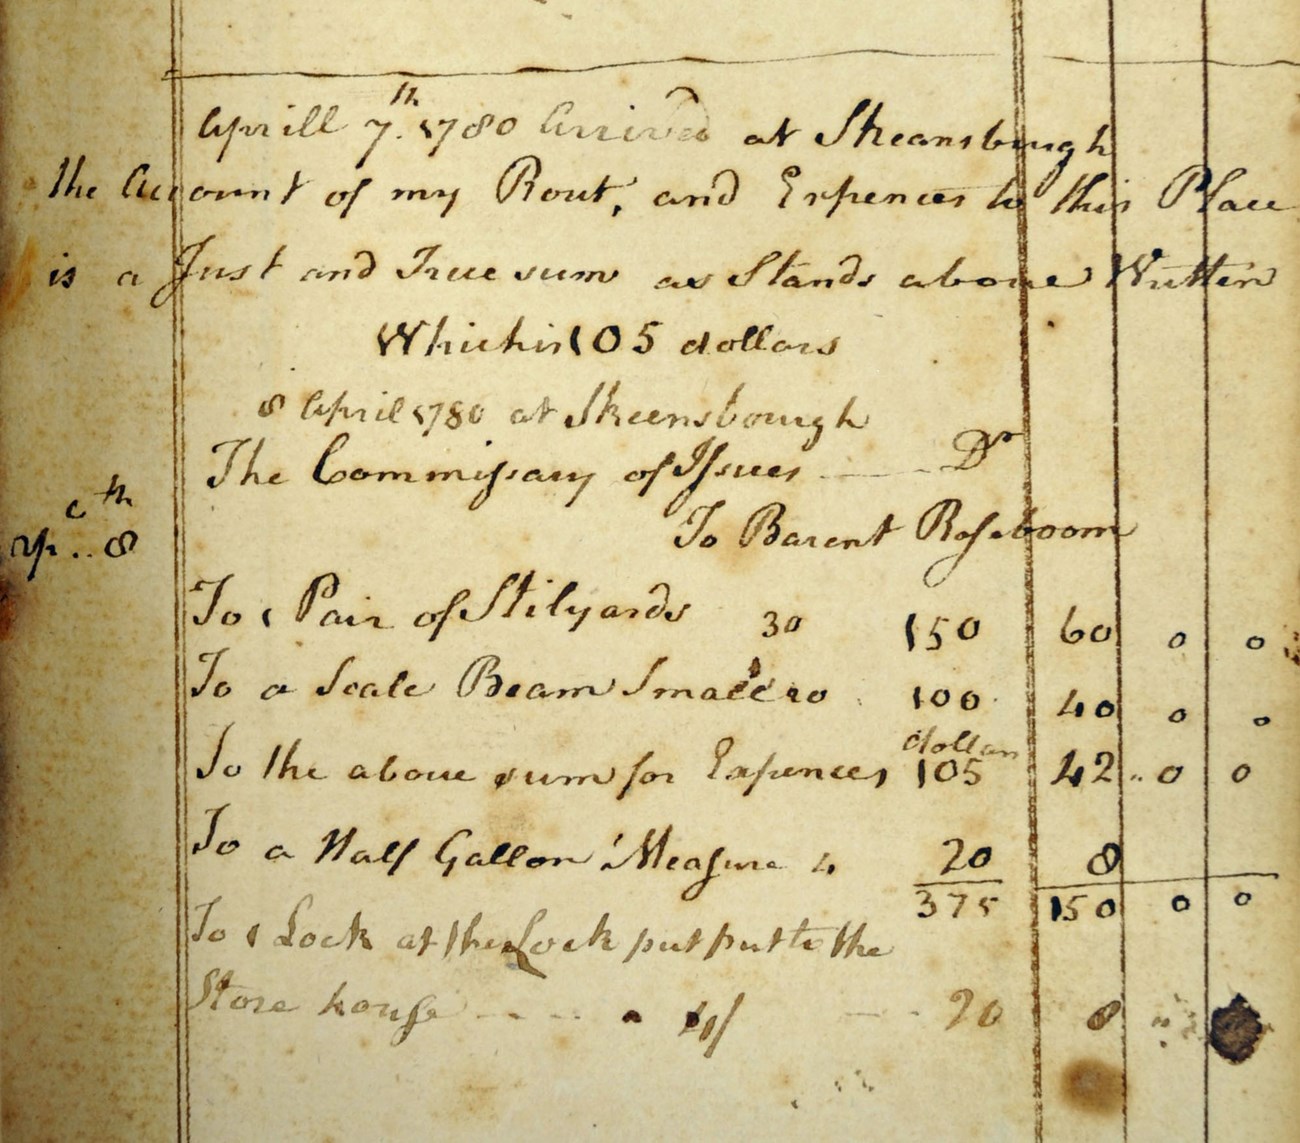 Aprill 7th 1780 Arrived at Skeansbough
the Account of my Rout, and Expences to this Place
is a Just and True sum as Stands above Written
Which is 105 dollars
8 April 1780 at Skeensbough
The Commissary of Issues —— Dr
To Barent Roseboom
th
ap .. 8
To 1 Pair of Stilyards 30 150 60 0 0
To a Scale Beam Small 20 100 40 0 0
dollars
To the above sum for Expences 105 42 .. 0 0
To a Half Gallon Measure 4 20 8
375 150 0 0
To 1 Lock at the Lock put put to the
Store house - - - - 4/ - - 20 8